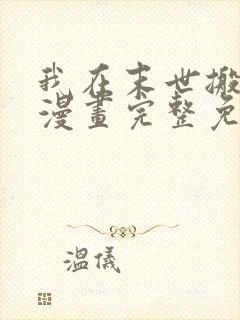 我在末世搬
漫畫完整免
溫儀